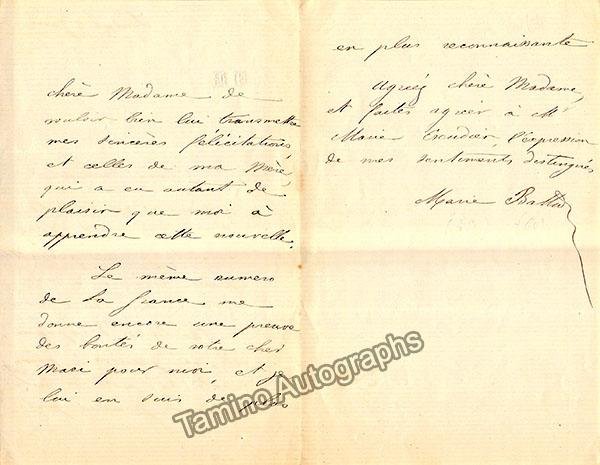 chère Madame de
vouloir bien lui transmettre
mes sincères félicitations,
et celles de ma Mère,
qui a eu autant de
plaisir que moi à
apprendre cette nouvelle.
Le même numero
de La france me
donne encore une preuve
des bontés de votre cher
Mari pour moi, et je
lui en suis de plus
en plus reconnaissante
Agréez chère Madame,
et faites agréer à Mr
Marie Escudier, l'expression
de mes sentiments distingués
Marie Battu
Tamino Autographs